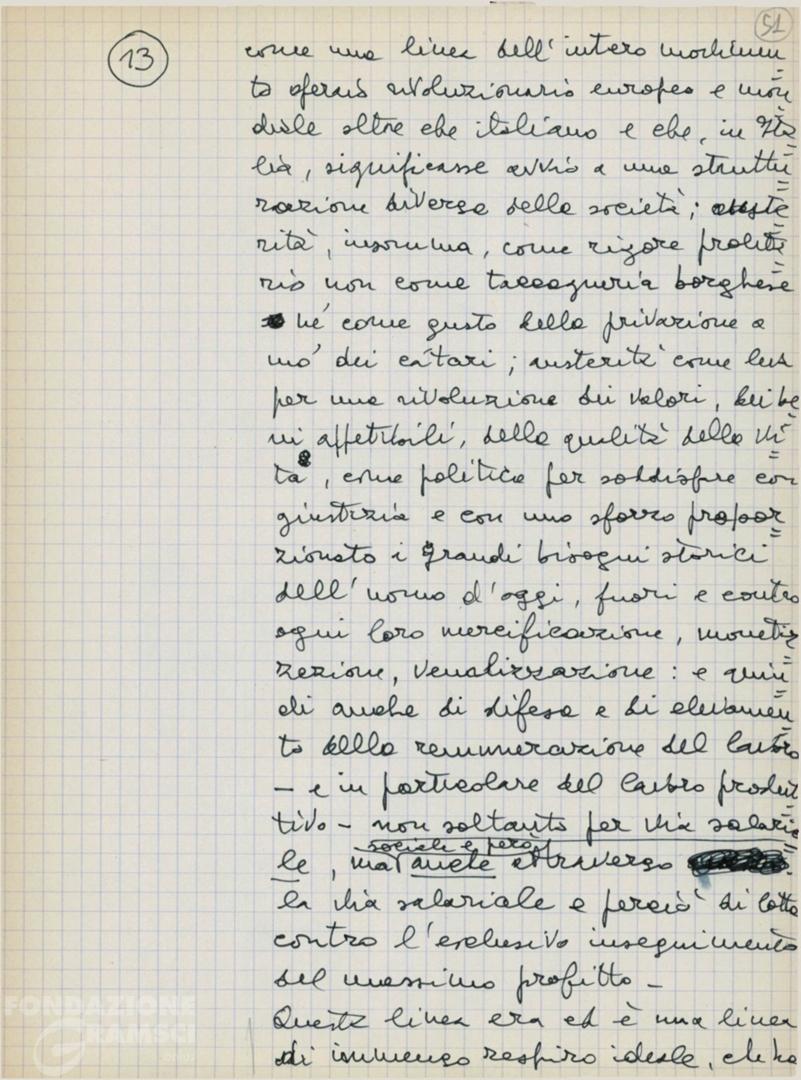 51
13
come una linea dell'intero movimen
to operaio rivoluzionario europeo e mon
diale oltre che italiano e che, in Ita
lia, significasse avvio a una struttu
razione diversa della società; auste
rità, insomma, come rigore proleta
rio non come taccagneria borghese
né come gusto della privazione a
mo' dei càtari; austerità come leva
per una rivoluzione dei valori, dei be
ni appetibili, della qualità della vi
ta, come politica per soddisfare con
giustizia e con uno sforzo propor
zionato i grandi bisogni storici
dell'uomo d'oggi, fuori e contro
ogni loro mercificazione, monetiz
zazione, venalizzazione: e quin
di anche di difesa e di elevamen
to della remunerazione del lavoro
– e in particolare del lavoro produt
tivo – non soltanto per via salaria
sociale e però
le, ma anche attraverso
la via salariale e perciò di lotta
contro l'esclusivo inseguimento
del massimo profitto –
Questa linea era ed è una linea
di immenso respiro ideale, che ha
FONDAZIONE
GRAMSCI